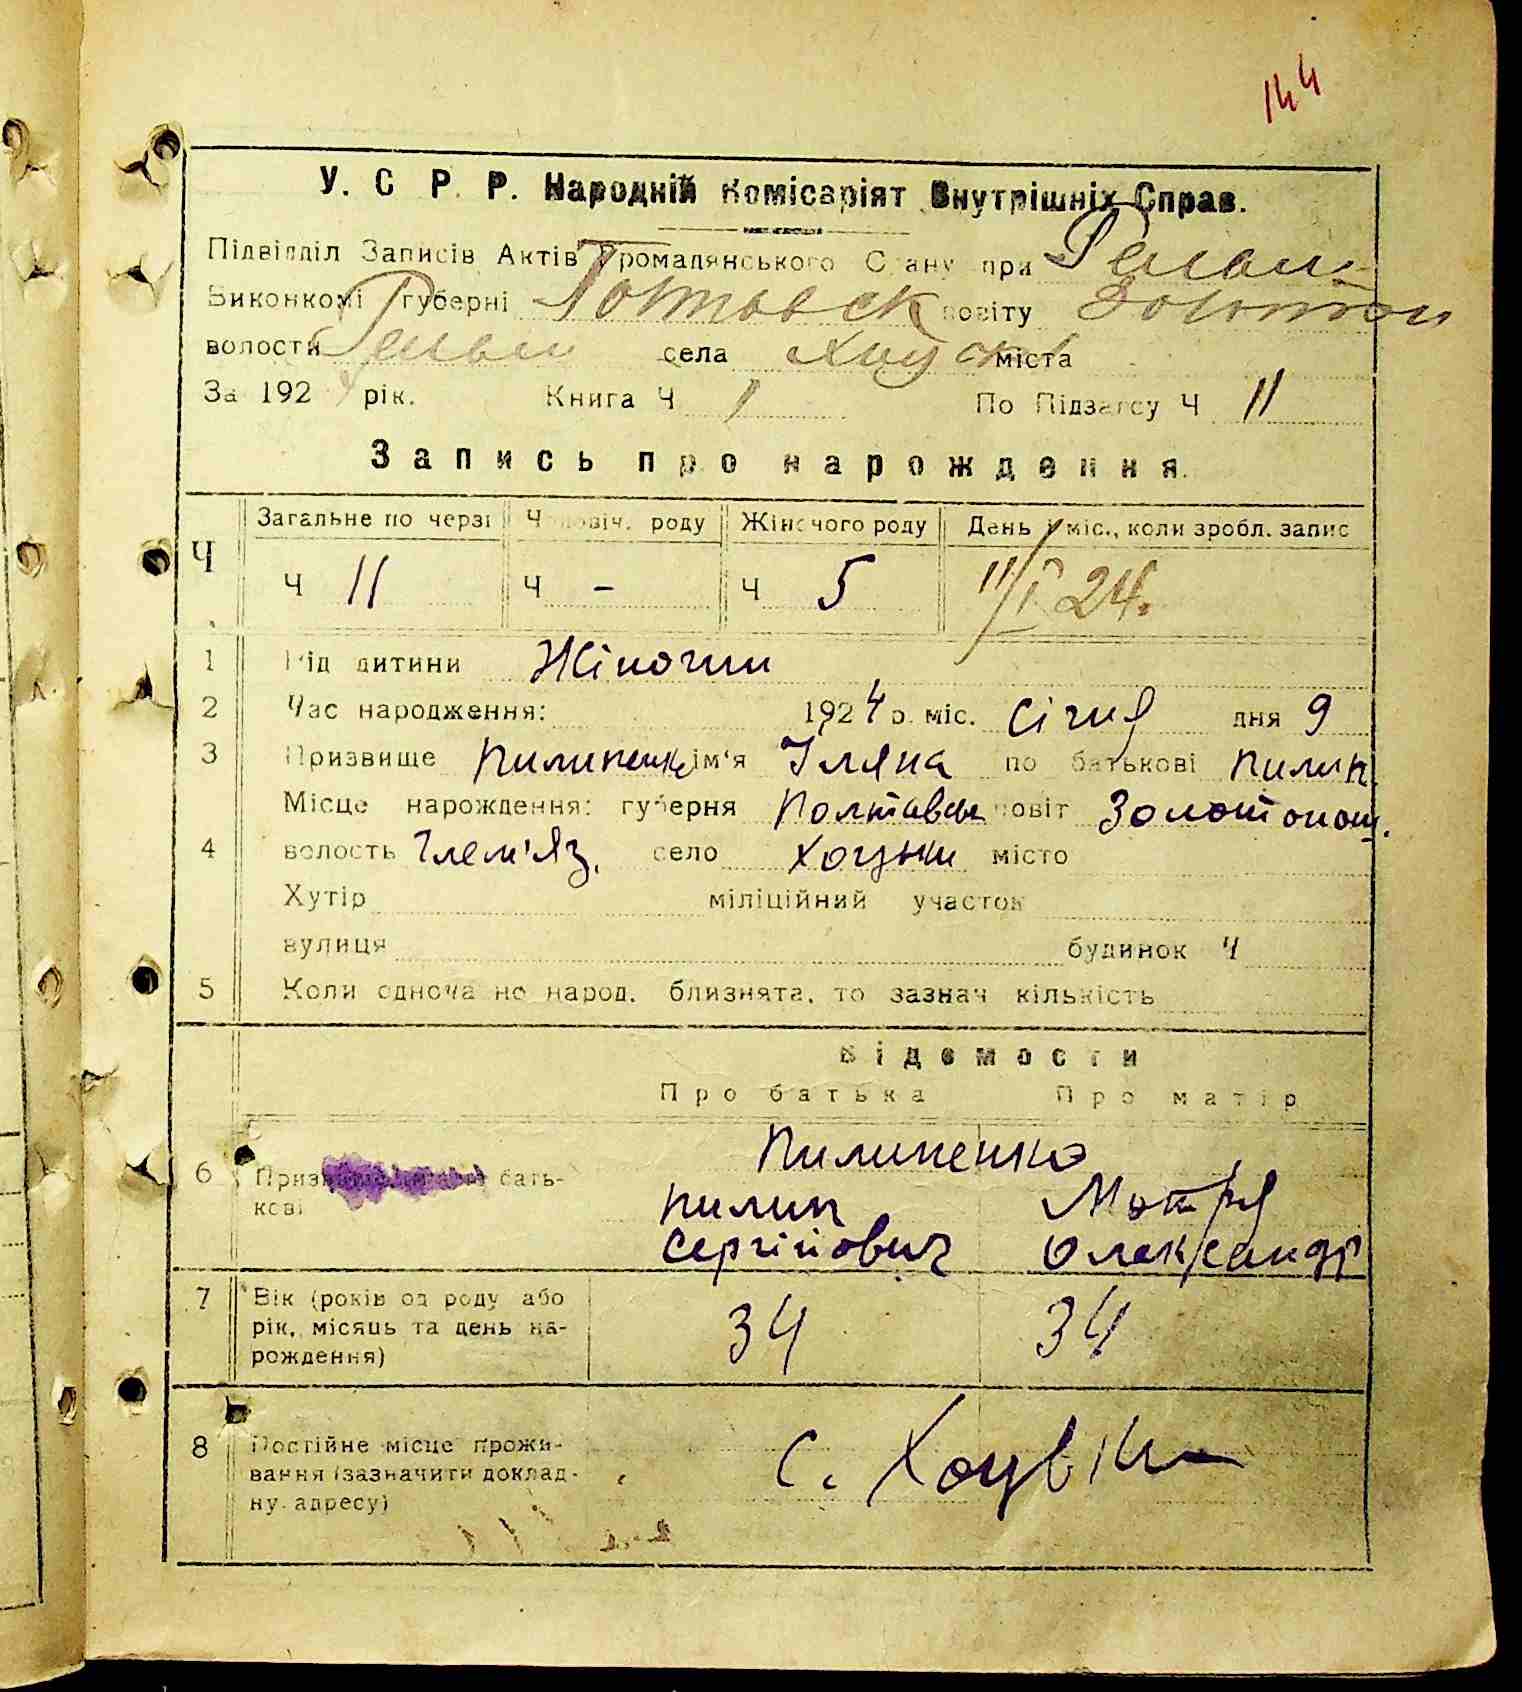 144
У. С Р. Р. Народній Комісаріят Внутрішніх Справ.
Підвідділ Записів Актів Громадянського Стану при Гельм.
Виконкомі губерні Полтавск повіту Золотон
волости Гельм села Хоцьк міста
За 1924 рік. Книга Ч 1 По Підзагсу Ч 11
Запись про нарождення.
Ч Загальне по черзі Чоловіч. роду Жіночого роду День і міс., коли зробл. запис
Ч 11 Ч - Ч 5 11/I 24.
1 Рід дитини Жіночий
2 Час народження: 1924 р. міс. Січня дня 9
3 Призвище Пилипенко ім'я Уляна по батькові Пилип.
Місце нарождення: губерня Полтавськ повіт Золотонош.
4 волость Глем'яз. село Хоцьки місто
Хутір міліційний участок
вулиця будинок Ч
5 Коли одноча но народ. близнята, то зазнач кількість
Відомости
Про батька Про матір
Пилипенко
6 Призвище, бать-
кові Пилип Мотря
Сергійович Олександр
7 Вік (років од роду або
рік, місяць та день на-
рождення) 34 34
8 Постійне місце прожи-
вання (зазначити доклад-
ну адресу) с. Хоцьки